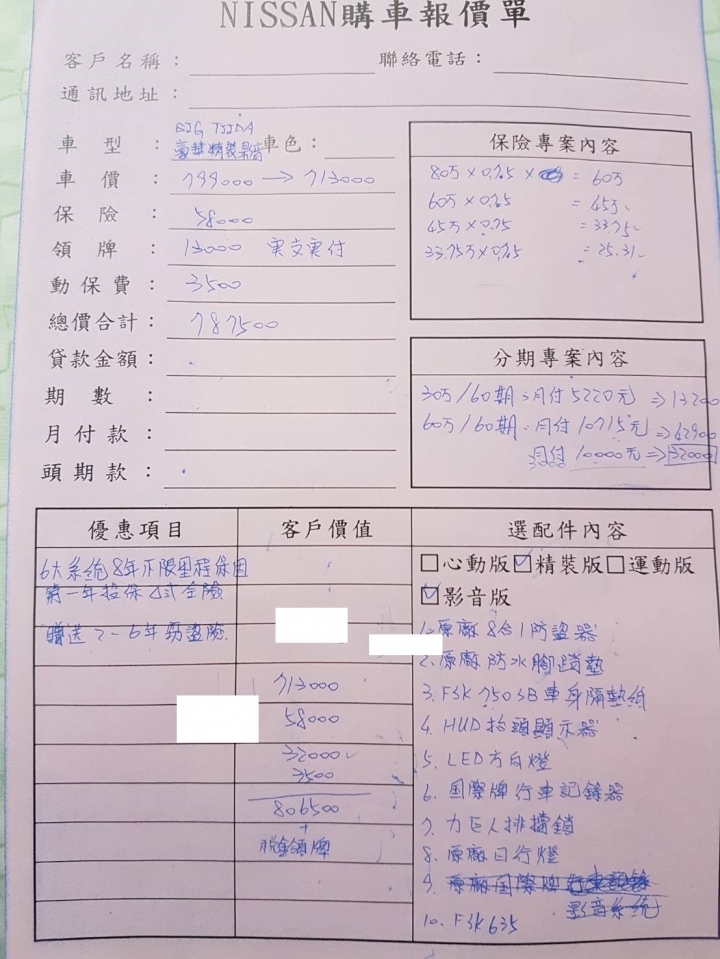 NISSAN購車報價單
客戶名稱： 聯絡電話：
通訊地址：
BIG TIIDA
車型： 豪華精裝影音 車色：
車價： 799000 → 713000
保險： 58000
領牌： 13000 實支實付
動保費： 3500
總價合計： 787500
貸款金額：
期數：
月付款：
頭期款：
保險專案內容
80万×0.75× = 60万
60万×0.75 = 45万
45万×0.75 = 33.75
33.75万×0.75 = 25.31
分期專案內容
30万/60期：月付5220元 ⇒ 13200
60万/60期：月付10715元 ⇒ 42900
月付10000元 ⇒ 32000
優惠項目 客戶價值 選配件內容
6大系統8年不限里程保固
第一年投保乙式全險
贈送2-6年竊盜險
713000
58000
32000
3500
806500
+
稅金領牌
□心動版☑精裝版□運動版
☑影音版
1. 原廠8合1防盜器
2. 原廠防水腳踏墊
3. FSK 750SB車身隔熱紙
4. HUD抬頭顯示器
5. LED方向燈
6. 国際牌行車記錄器
7. 力巨人排擋鎖
8. 原廠日行燈
9. 原廠国際牌行車記錄
影音系統
10. FSK 635